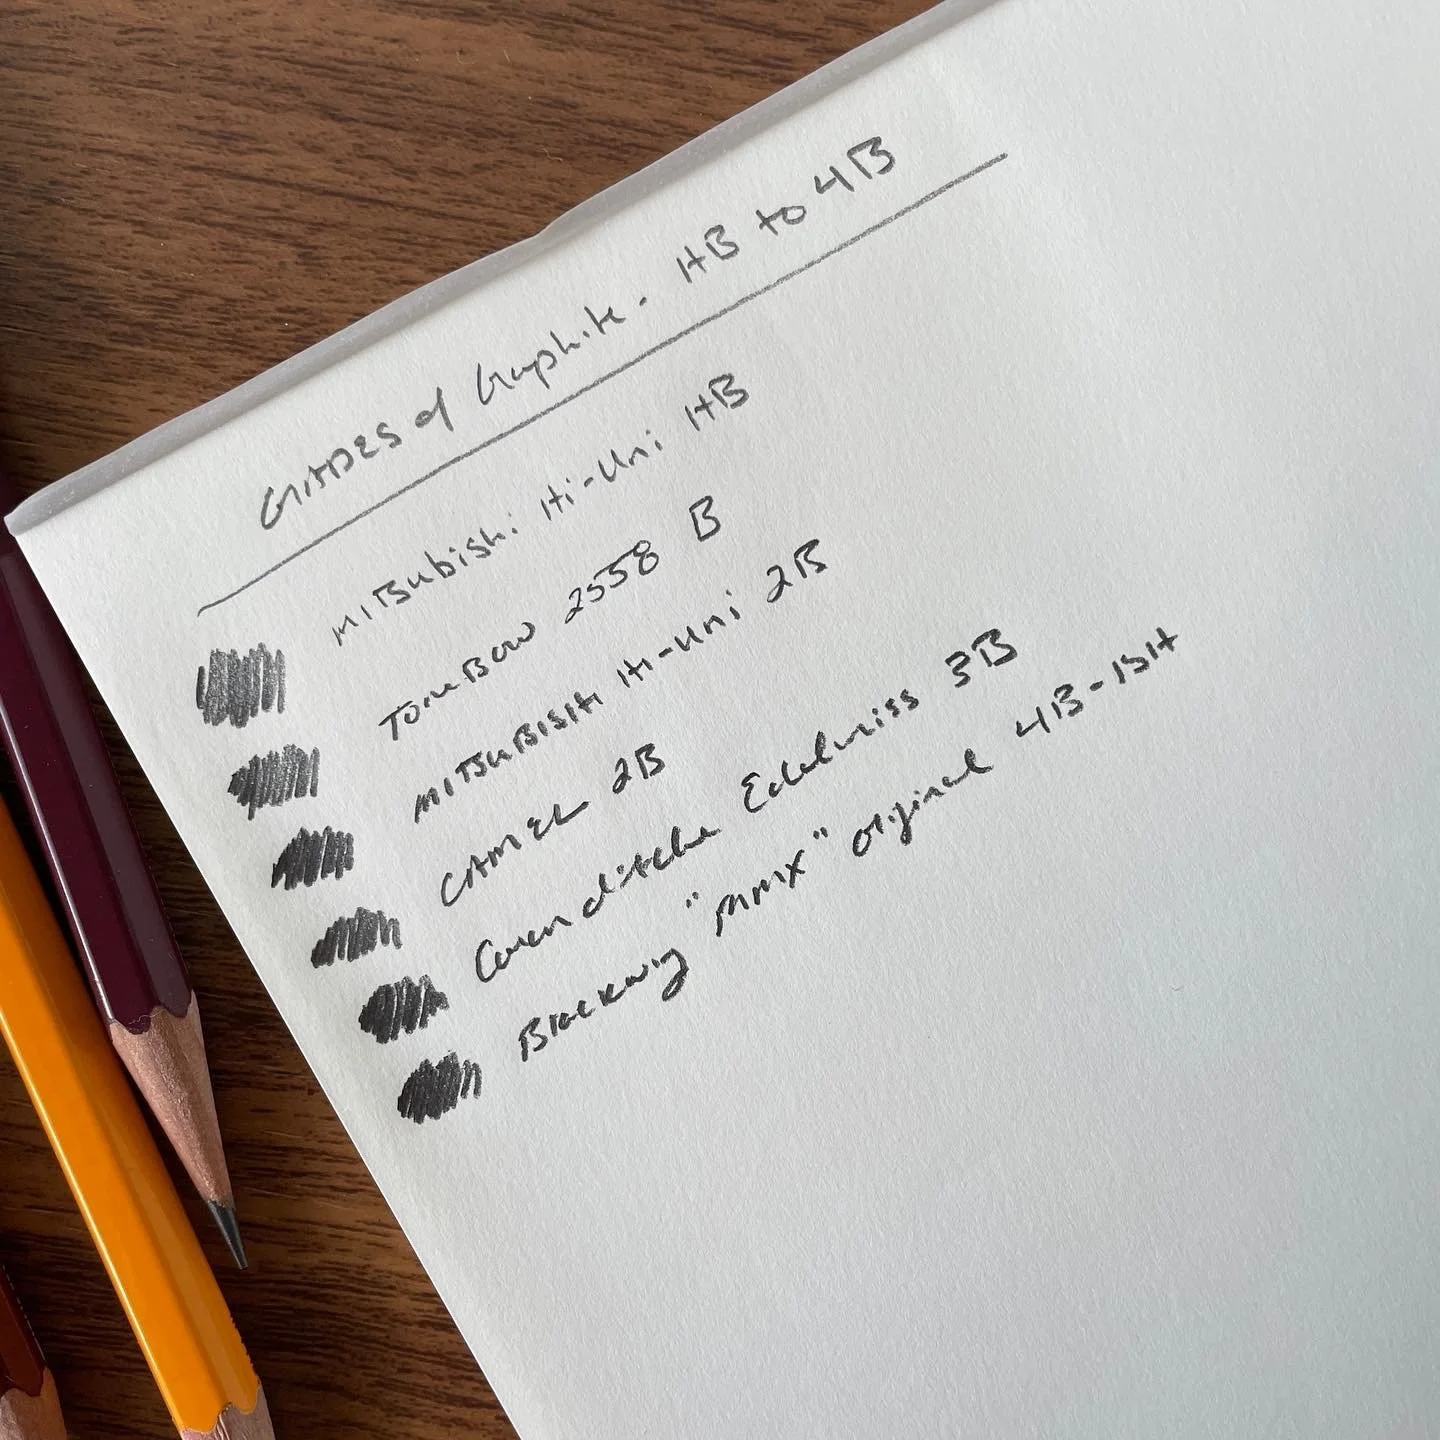 GRADES of Graphite - HB to 4B
Mitsubishi Hi-Uni HB
TOMBOW 2558 B
MITSUBISHI HI-Uni 2B
CAMEL 2B
Caran d'Ache Edelweiss 3B
Blackwing "MMX" original 4B-ISH